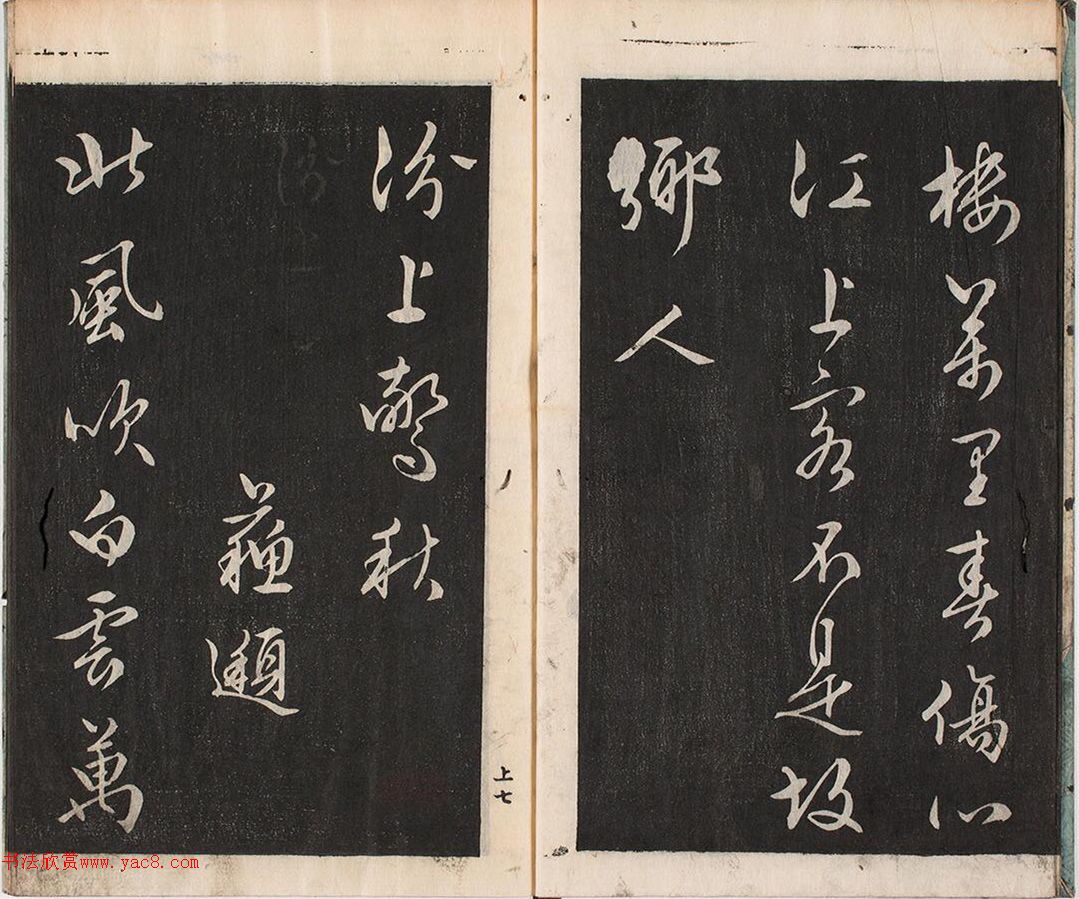 樓萬里春傷心
江上客不是故
鄉人
汾上驚秋
蘇頲
北風吹白雲萬
上七
书法欣赏www.yac8.com